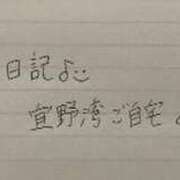 日記♪
宜野湾ご自宅